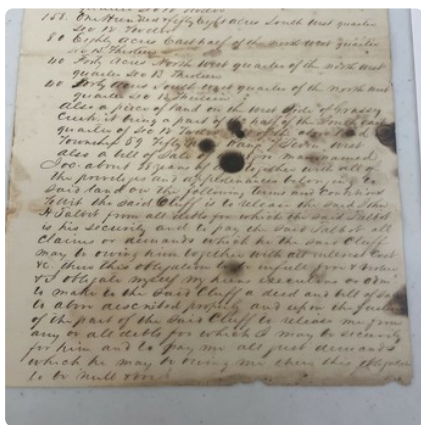 158. One Hundred & fifty Eight acres South West quarter
Sec 12 Twelve
80 Eighty Acres East half of the North West quarter
Sec 13 Thirteen
40 Forty Acres North West quarter of the North West
quarter Sec 13 Thirteen
40 Forty Acres South West quarter of the North West
quarter Sec 13 Thirteen
Also a piece of land on the West Side of Grassy
Creek it being a part of the half of the South East
quarter of Sec 12 Twelve of the above
Township 59 Fifty Range 7 Seven West
also a bill of Sale of man named
Joe. about years together with all of
the priveleges and appurtenances belonging to
said land on the following terms and conditions
To wit the said Cluff is to release the said John
H Talbot from all debts for which the said Talbot
is his security and to pay the said Talbot all
claims or demands which he the said Cluff
may be owing him together with all interest cost
&c. then this obligation to be in full force & virtue
& I obligate myself my heirs executors or adms
to make to the said Cluff a deed and bill of sale
to above described property and upon the failure
of the part of the said Cluff to release me from
any or all debts for which I may be security
for him and to pay me all just demands
which he may be owing me then this obligation
to be null & void